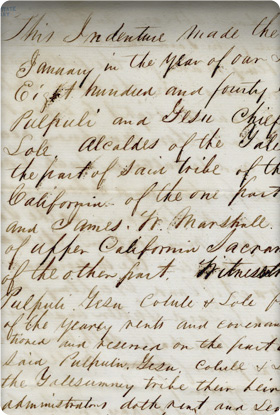 This Indenture made the
January in the year of our
Eight hundred and fourty
Pulpuli and Gesu Chief
Lole, Alcaldes of the Yale
the part of said tribe of th
California of the one part
and James. W. Marshall,
of upper California Sacram
of the other part. Witnesseth
Pulpuli. Gesu. Colule & Sole f
of the yearly rents and covenan
tioned and reserved on the part
said Pulpuli, Gesu, Colule &
the Yallesumney tribe their heir
administrators doth rent and Le